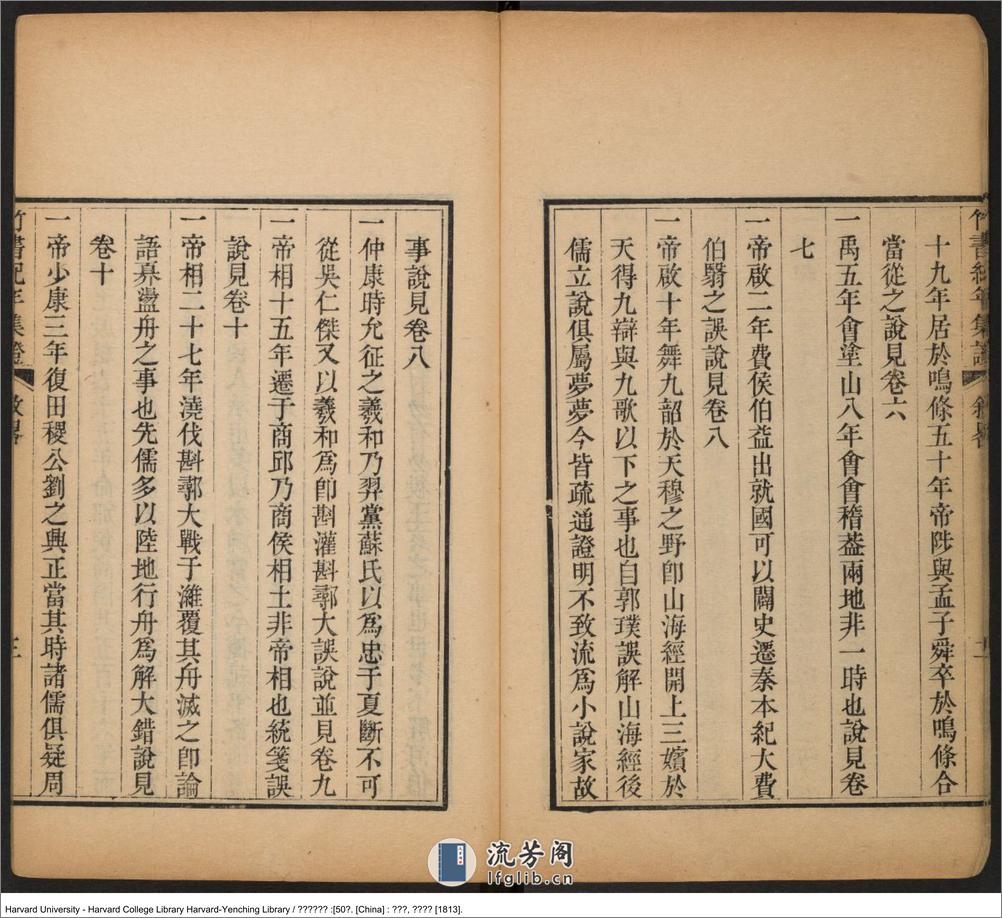 竹書紀年集證 叙畧 二
十九年居於鳴條五十年帝陟與孟子舜卒於鳴條合
當從之說見卷六
一禹五年會塗山八年會會稽葢兩地非一時也說見卷
七
一帝啟二年費侯伯益出就國可以闢史遷秦本紀大費
伯翳之誤說見卷八
一帝啟十年舞九韶於天穆之野卽山海經開上三嬪於
天得九辯與九歌以下之事也自郭璞誤解山海經後
儒立說俱屬夢夢今皆疏通證明不致流爲小說家故
事說見卷八
一仲康時允征之羲和乃羿黨蘇氏以爲忠于夏斷不可
從吳仁傑又以羲和爲卽斟灌斟鄩大誤說並見卷九
一帝相十五年遷于商邱乃商侯相土非帝相也統箋誤
說見卷十
一帝相二十七年澆伐斟鄩大戰于濰覆其舟滅之卽論
語奡盪舟之事也先儒多以陸地行舟爲解大錯說見
卷十
一帝少康三年復田稷公劉之興正當其時諸儒俱疑周
竹書紀年集證 叙畧 三
流芳阁
lfglib.cn
Harvard University - Harvard College Library Harvard-Yenching Library / ?????? :[50?. [China] : ???, ???? [1813].